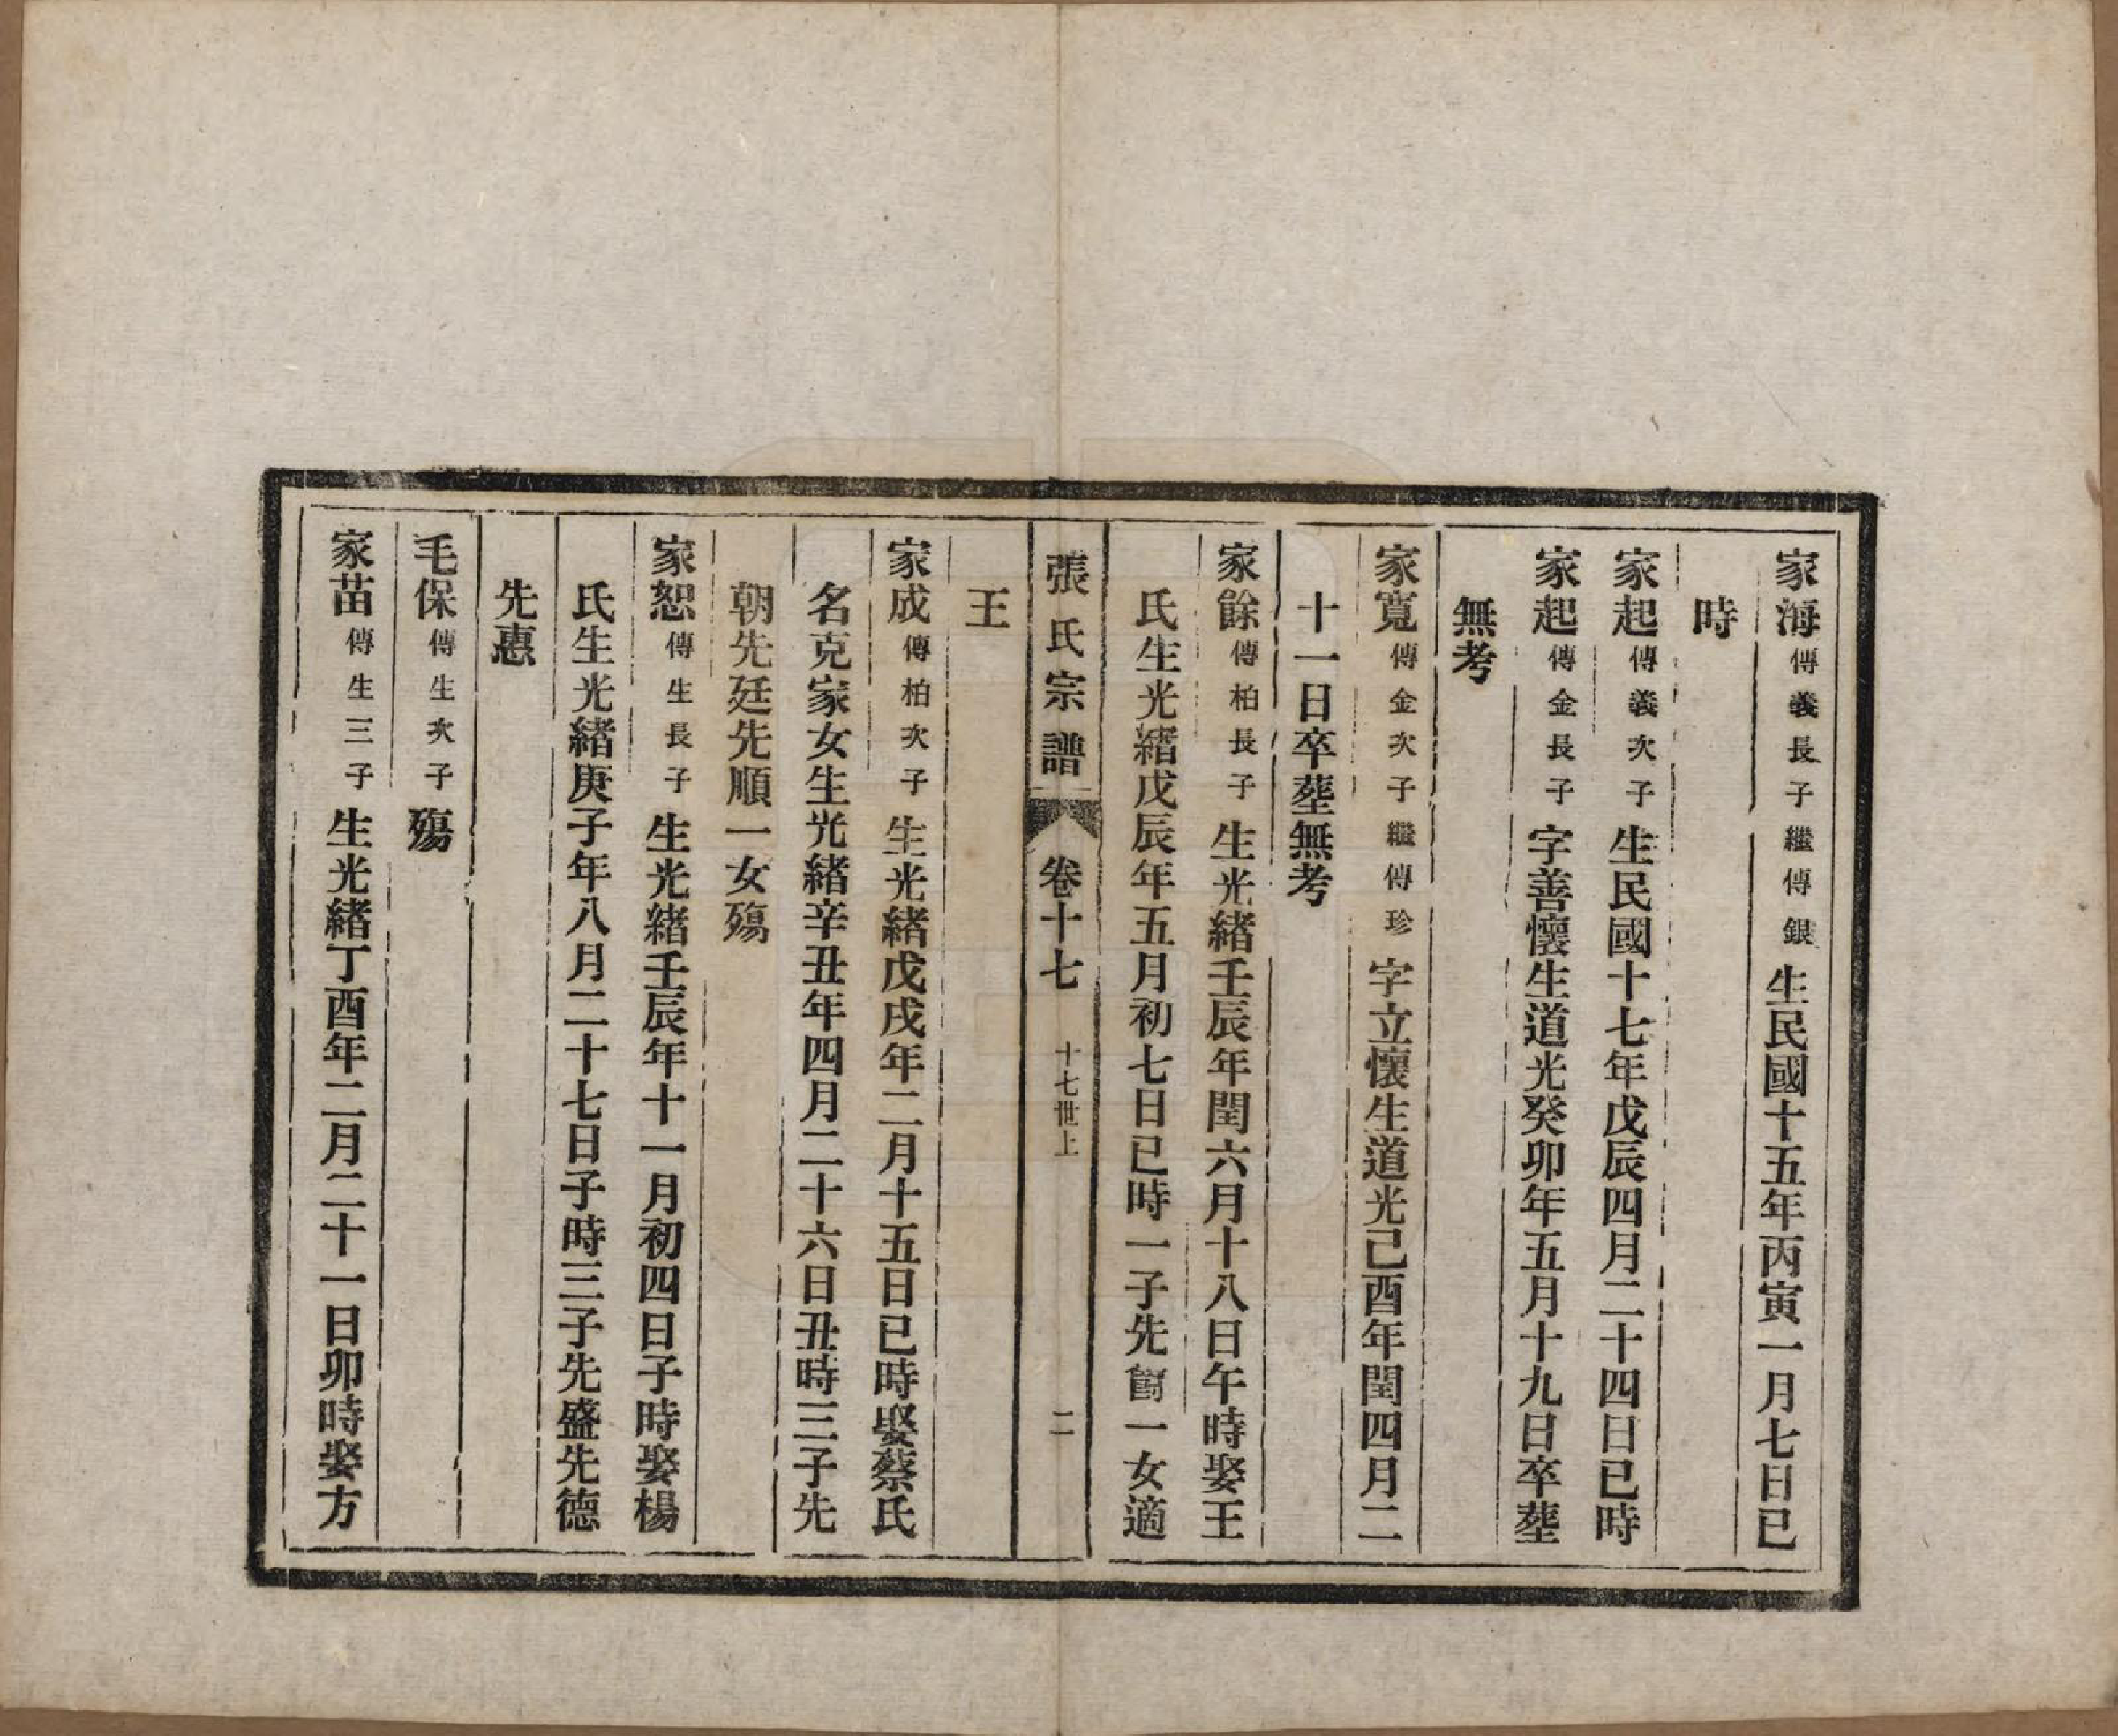 家海傳義長子繼傳銀生民國十五年丙寅一月七日巳
時
家起傳義次子生民國十七年戊辰四月二十四日巳時
家起傳金長子字善懷生道光癸卯年五月十九日卒塟
無考
家寬傳金次子繼傳珍字立懷生道光己酉年閏四月二
十一日卒塟無考
家餘傳柏長子生光緒壬辰年閏六月十八日午時娶王
氏生光緒戊辰年五月初七日巳時一子先一女適
張氏宗譜
卷十七
十七世上
二
王
家成傳柏次子生光緒戊戌年二月十五日巳時娶蔡氏
名克家女生光緒辛丑年四月二十六日丑時三子先
朝先廷先順一女殤
家恕傳生長子生光緒壬辰年十一月初四日子時娶楊
氏生光緒庚子年八月二十七日子時三子先盛先德
先惠
毛保傳生次子殤
家苗傳生三子生光緒丁酉年二月二十一日卯時娶方